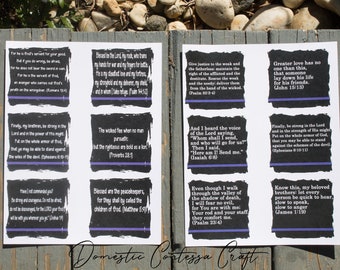 For he is God's servant for your good.
But if you do wrong, be afraid,
for he does not bear the sword in vain.
For he is the servant of God,
an avenger who carries out God's
wrath on the wrongdoer. (Romans 13:4)
Blessed be the Lord, my rock, who trains
my hands for war and my fingers for battle;
He is my steadfast love and my fortress,
my stronghold and my deliverer, my shield,
and in whom I take refuge. (Psalm 144:1-2)
Finally, my brethren, be strong in the
Lord and in the power of His might.
Put on the whole armor of God,
that ye may be able to stand against
the wiles of the devil. (Ephesians 6:10-11)
The wicked flee when no man
pursueth:
but the righteous are bold as a lion.
(Proverbs 28:1)
Have I not commanded you?
Be strong and courageous. Do not be afraid;
do not be discouraged, for the LORD your God
will be with you wherever you go." (Joshua 1:9)
Blessed are the peacekeepers,
for they shall be called the
children of God. (Matthew 5:9)
Give justice to the weak and
the fatherless; maintain the
right of the afflicted and the
destitute. Rescue the weak
and the needy; deliver them
from the hand of the wicked.
(Psalm 82:3-4)
Greater love has no
one than this,
that someone
lay down his life
for his friends.
(John 15:13)
And I heard the voice
of the Lord saying,
"Whom shall I send,
and who will go for us?"
Then I said,
"Here am I! Send me."
(Isaiah 6:8)
Finally, be strong in the Lord
and in the strength of His might.
Put on the whole armor of God,
that you may be able to stand
against the schemes of the devil.
(Ephesians 6:10-11)
Even though I walk
through the valley
of the shadow of death,
I will fear no evil,
for You are with me;
Your rod and your staff,
they comfort me.
(Psalm 23:4)
Know this, my beloved
brothers: let every
person be quick to hear,
slow to speak,
slow to anger
(James 1:19)
Domestic Contessa Craft